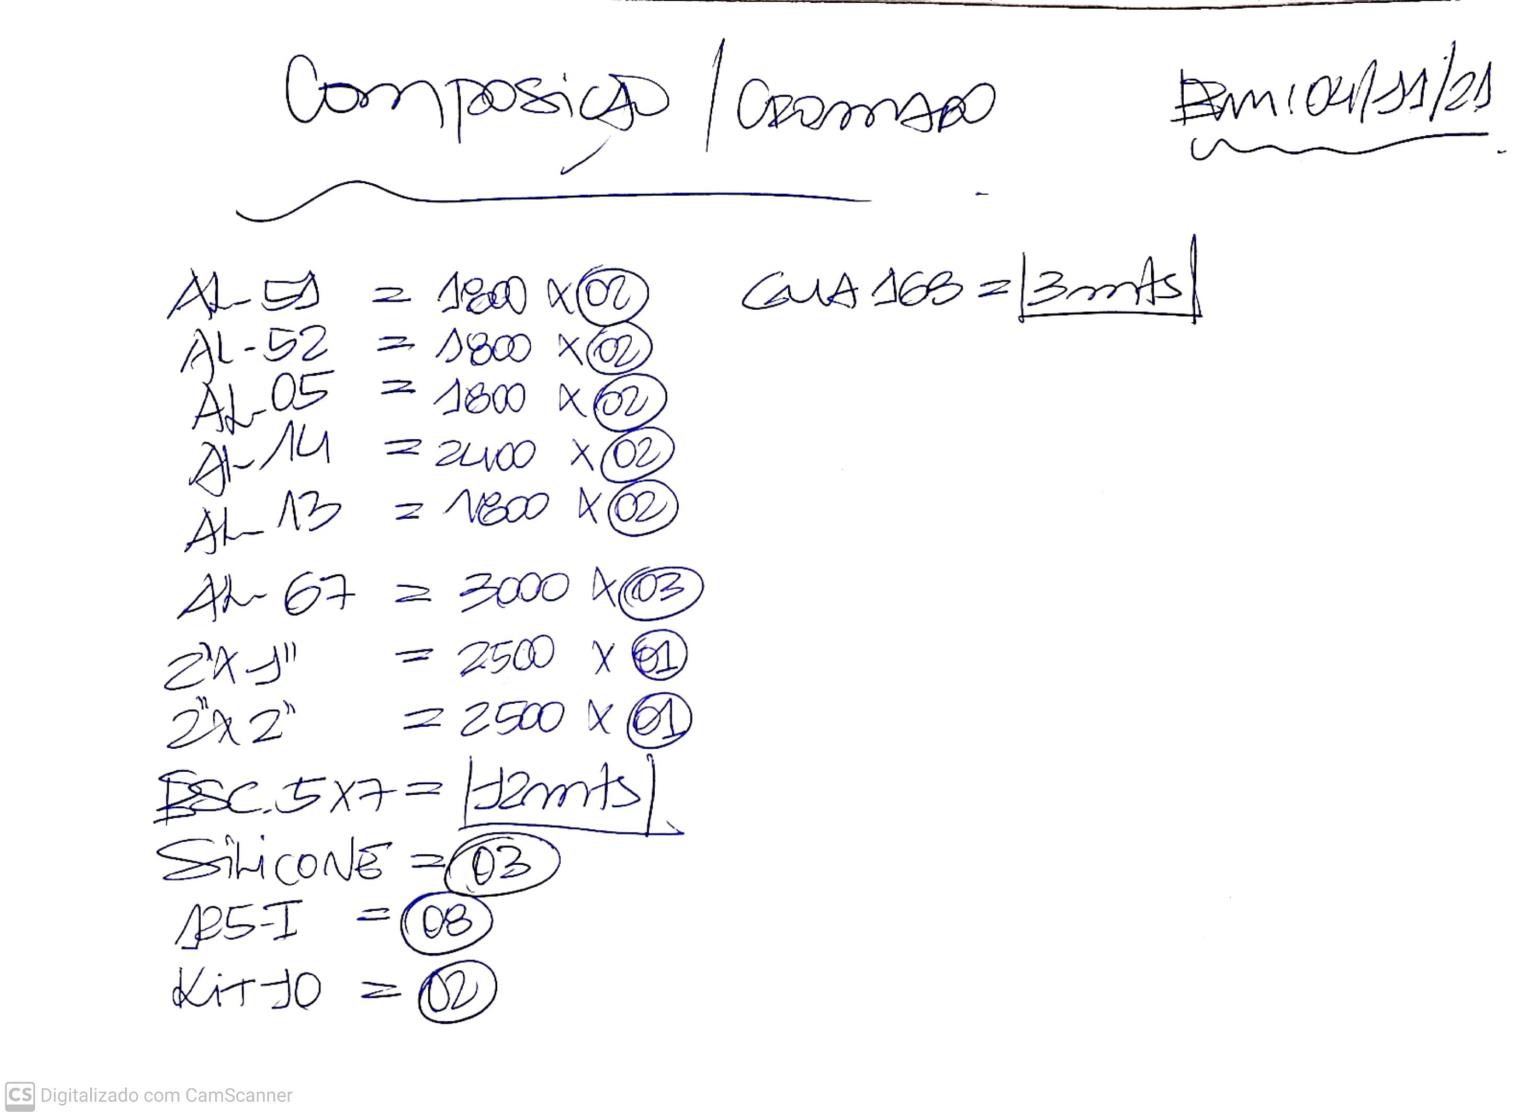 Composição / CROMADO
Em: 04/11/21
AL-51 = 1800 x 02
GUA 168 = 3mts
AL-52 = 1800 x 02
AL-05 = 1800 x 02
AL-14 = 2400 x 02
AL-13 = 1800 x 02
AL-67 = 3000 x 03
2"x1" = 2500 x 01
2"x2" = 2500 x 01
ESC. 5x7 = 12mts
SILICONE = 03
125-I = 08
KIT 10 = 02
CS Digitalizado com CamScanner